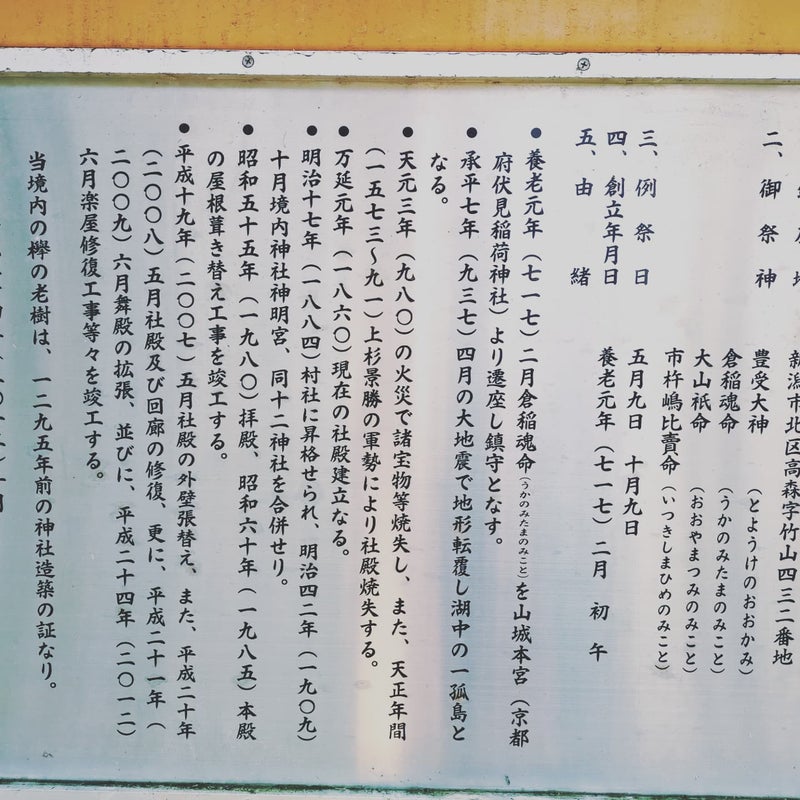 新潟市北区高森字竹山四三二番地
二、御祭神
豊受大神（とようけのおおかみ）
倉稲魂命（うかのみたまのみこと）
大山祇命（おおやまつみのみこと）
市杵嶋比賣命（いつきしまひめのみこと）
三、例祭日 五月九日 十月九日
四、創立年月日 養老元年（七一七）二月 初午
五、由緒
●養老元年（七一七）二月倉稲魂命（うかのみたまのみこと）を山城本宮（京都
府伏見稲荷神社）より遷座し鎮守となす。
●承平七年（九三七）四月の大地震で地形転覆し湖中の一孤島と
なる。
●天元三年（九八〇）の火災で諸宝物等焼失し、また、天正年間
（一五七三～九一）上杉景勝の軍勢により社殿焼失する。
●万延元年（一八六〇）現在の社殿建立なる。
●明治十七年（一八八四）村社に昇格せられ、明治四二年（一九〇九）
十月境内神社神明宮、同十二神社を合併せり。
●昭和五十五年（一九八〇）拝殿、昭和六十年（一九八五）本殿
の屋根葺き替え工事を竣工する。
●平成十九年（二〇〇七）五月社殿の外壁張替え、また、平成二十年
（二〇〇八）五月社殿及び回廊の修復、更に、平成二十一年（
二〇〇九）六月舞殿の拡張、並びに、平成二十四年（二〇一二）
六月楽屋修復工事等々を竣工する。
当境内の欅の老樹は、一二九五年前の神社造築の証なり。